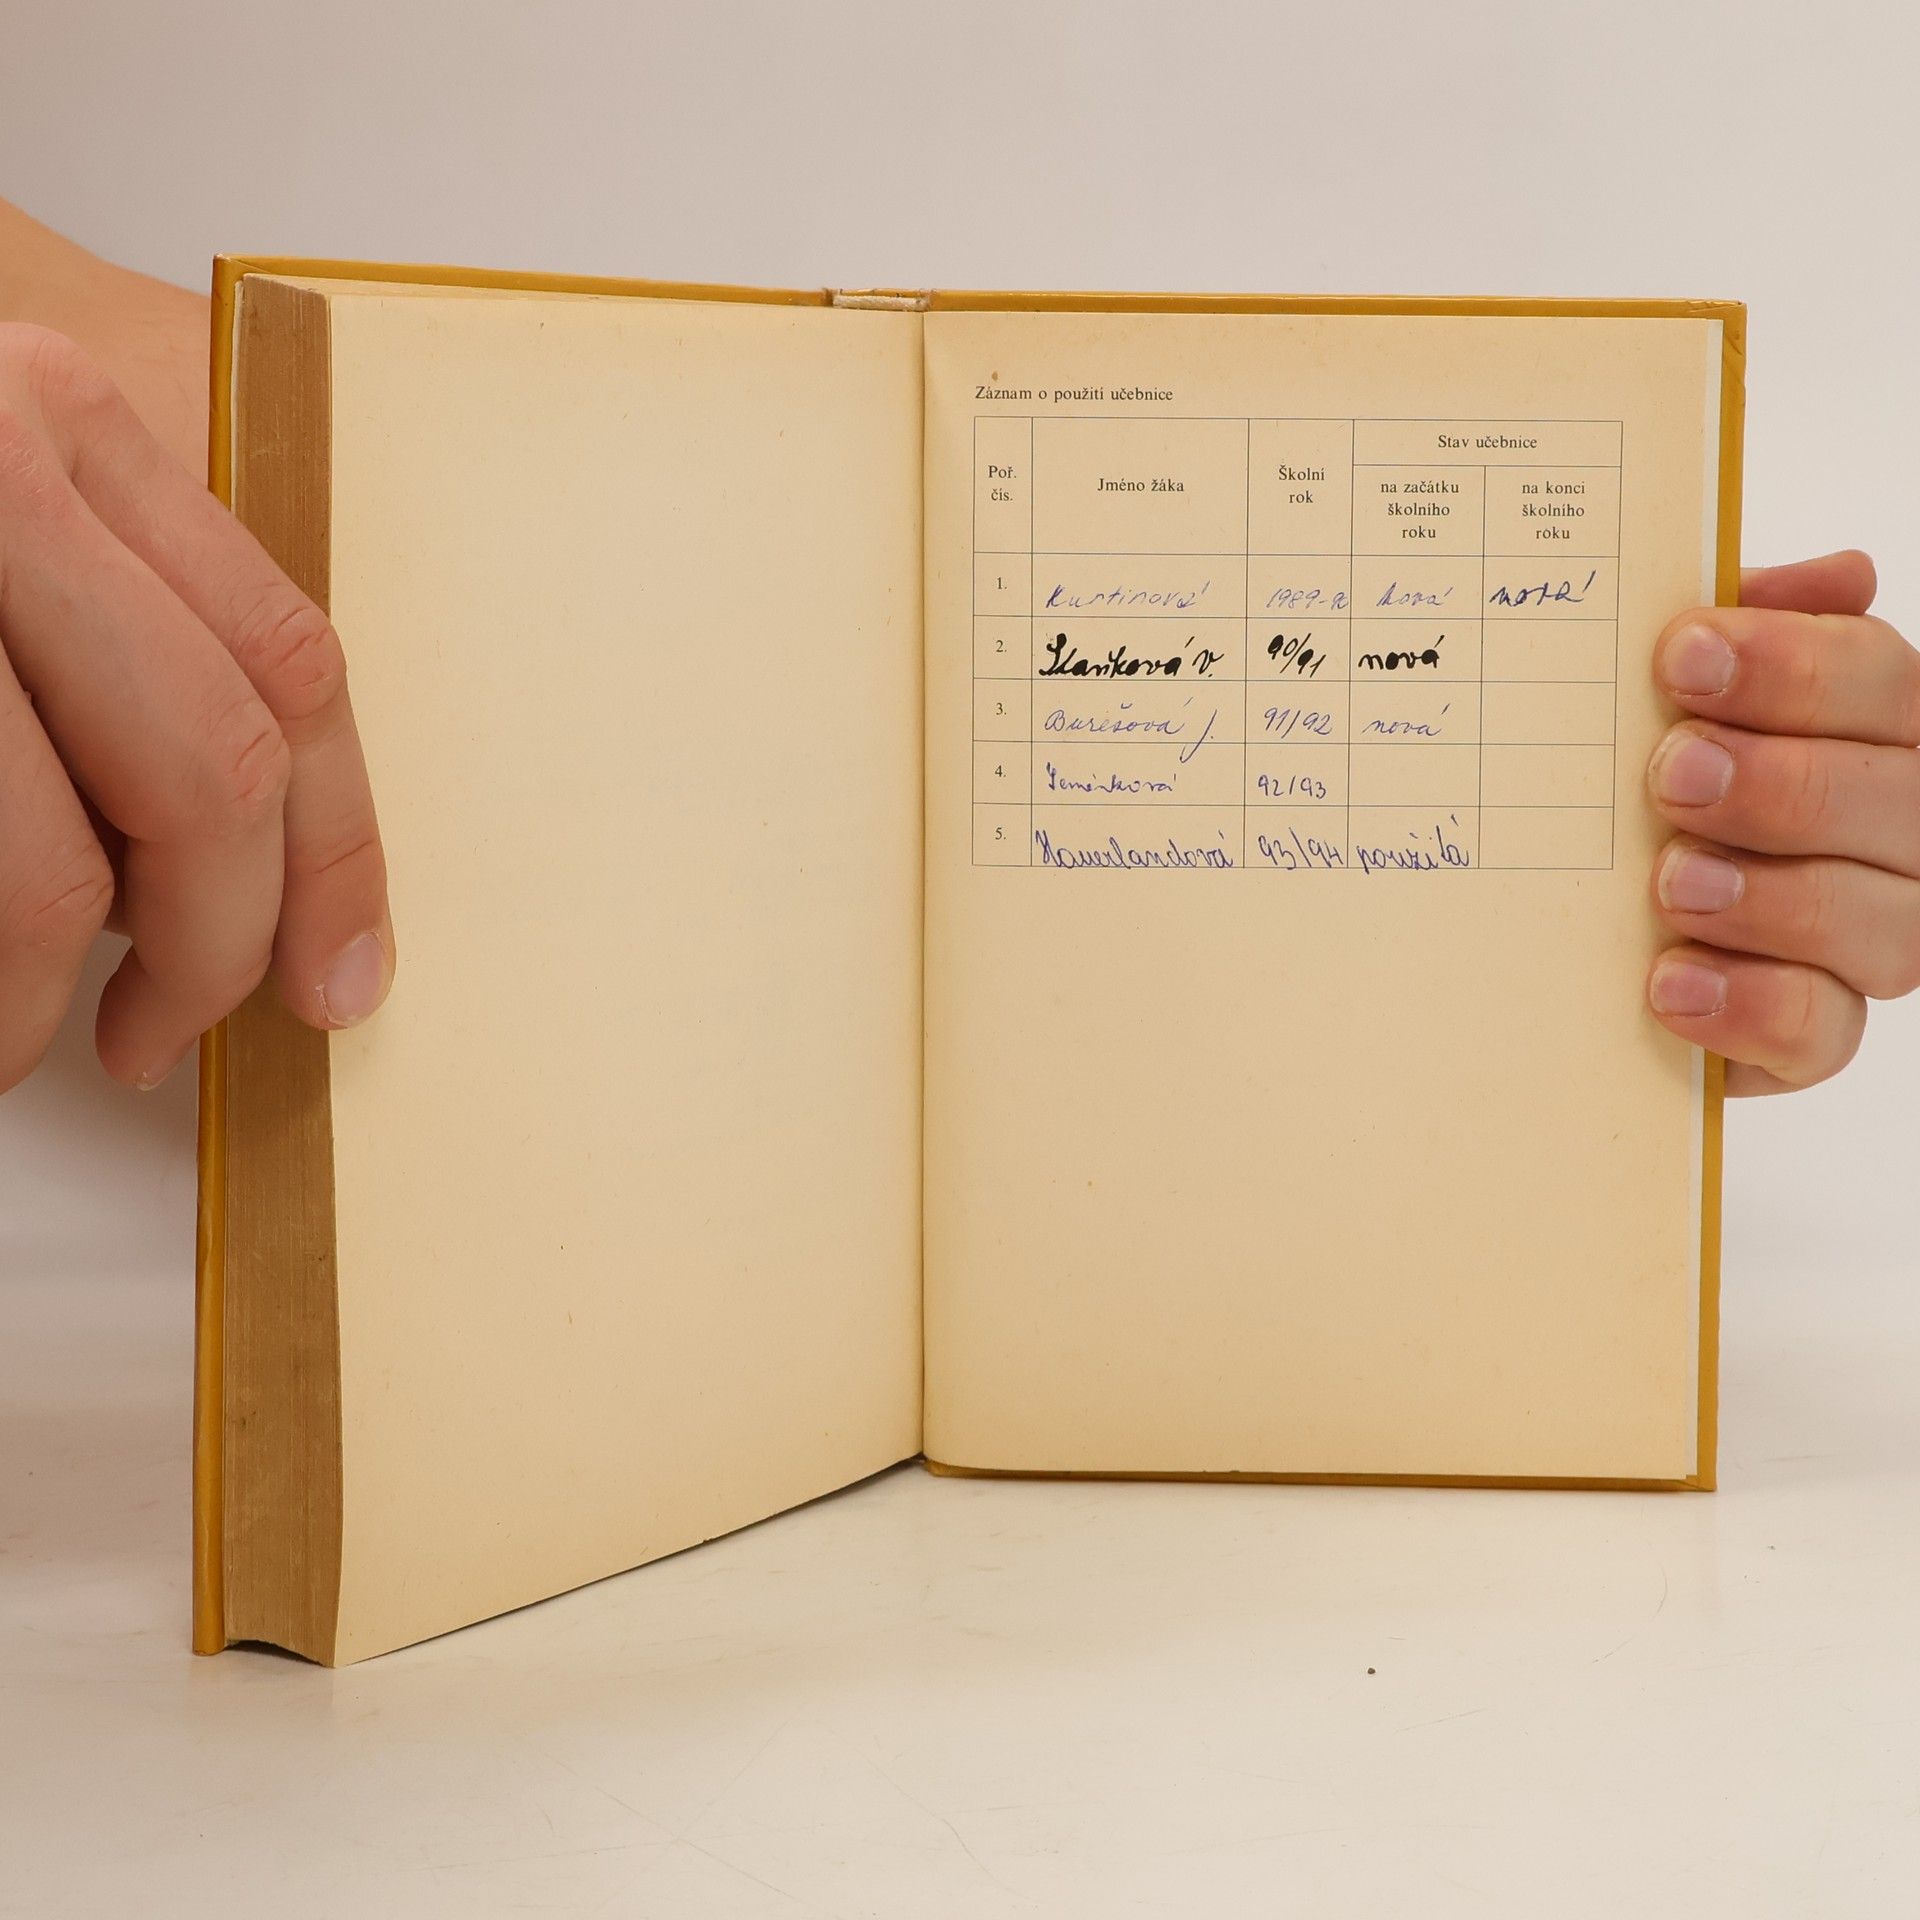 Záznam o použití učebnice
Poř. čís.
Jméno žáka
Školní rok
Stav učebnice
na začátku školního roku
na konci školního roku
1. 1989-90 nová nová
2. Staňková V. 90/91 nová
3. Burešová J. 91/92 nová
4. 92/93
5. Hauerlandová 93/94 použitá